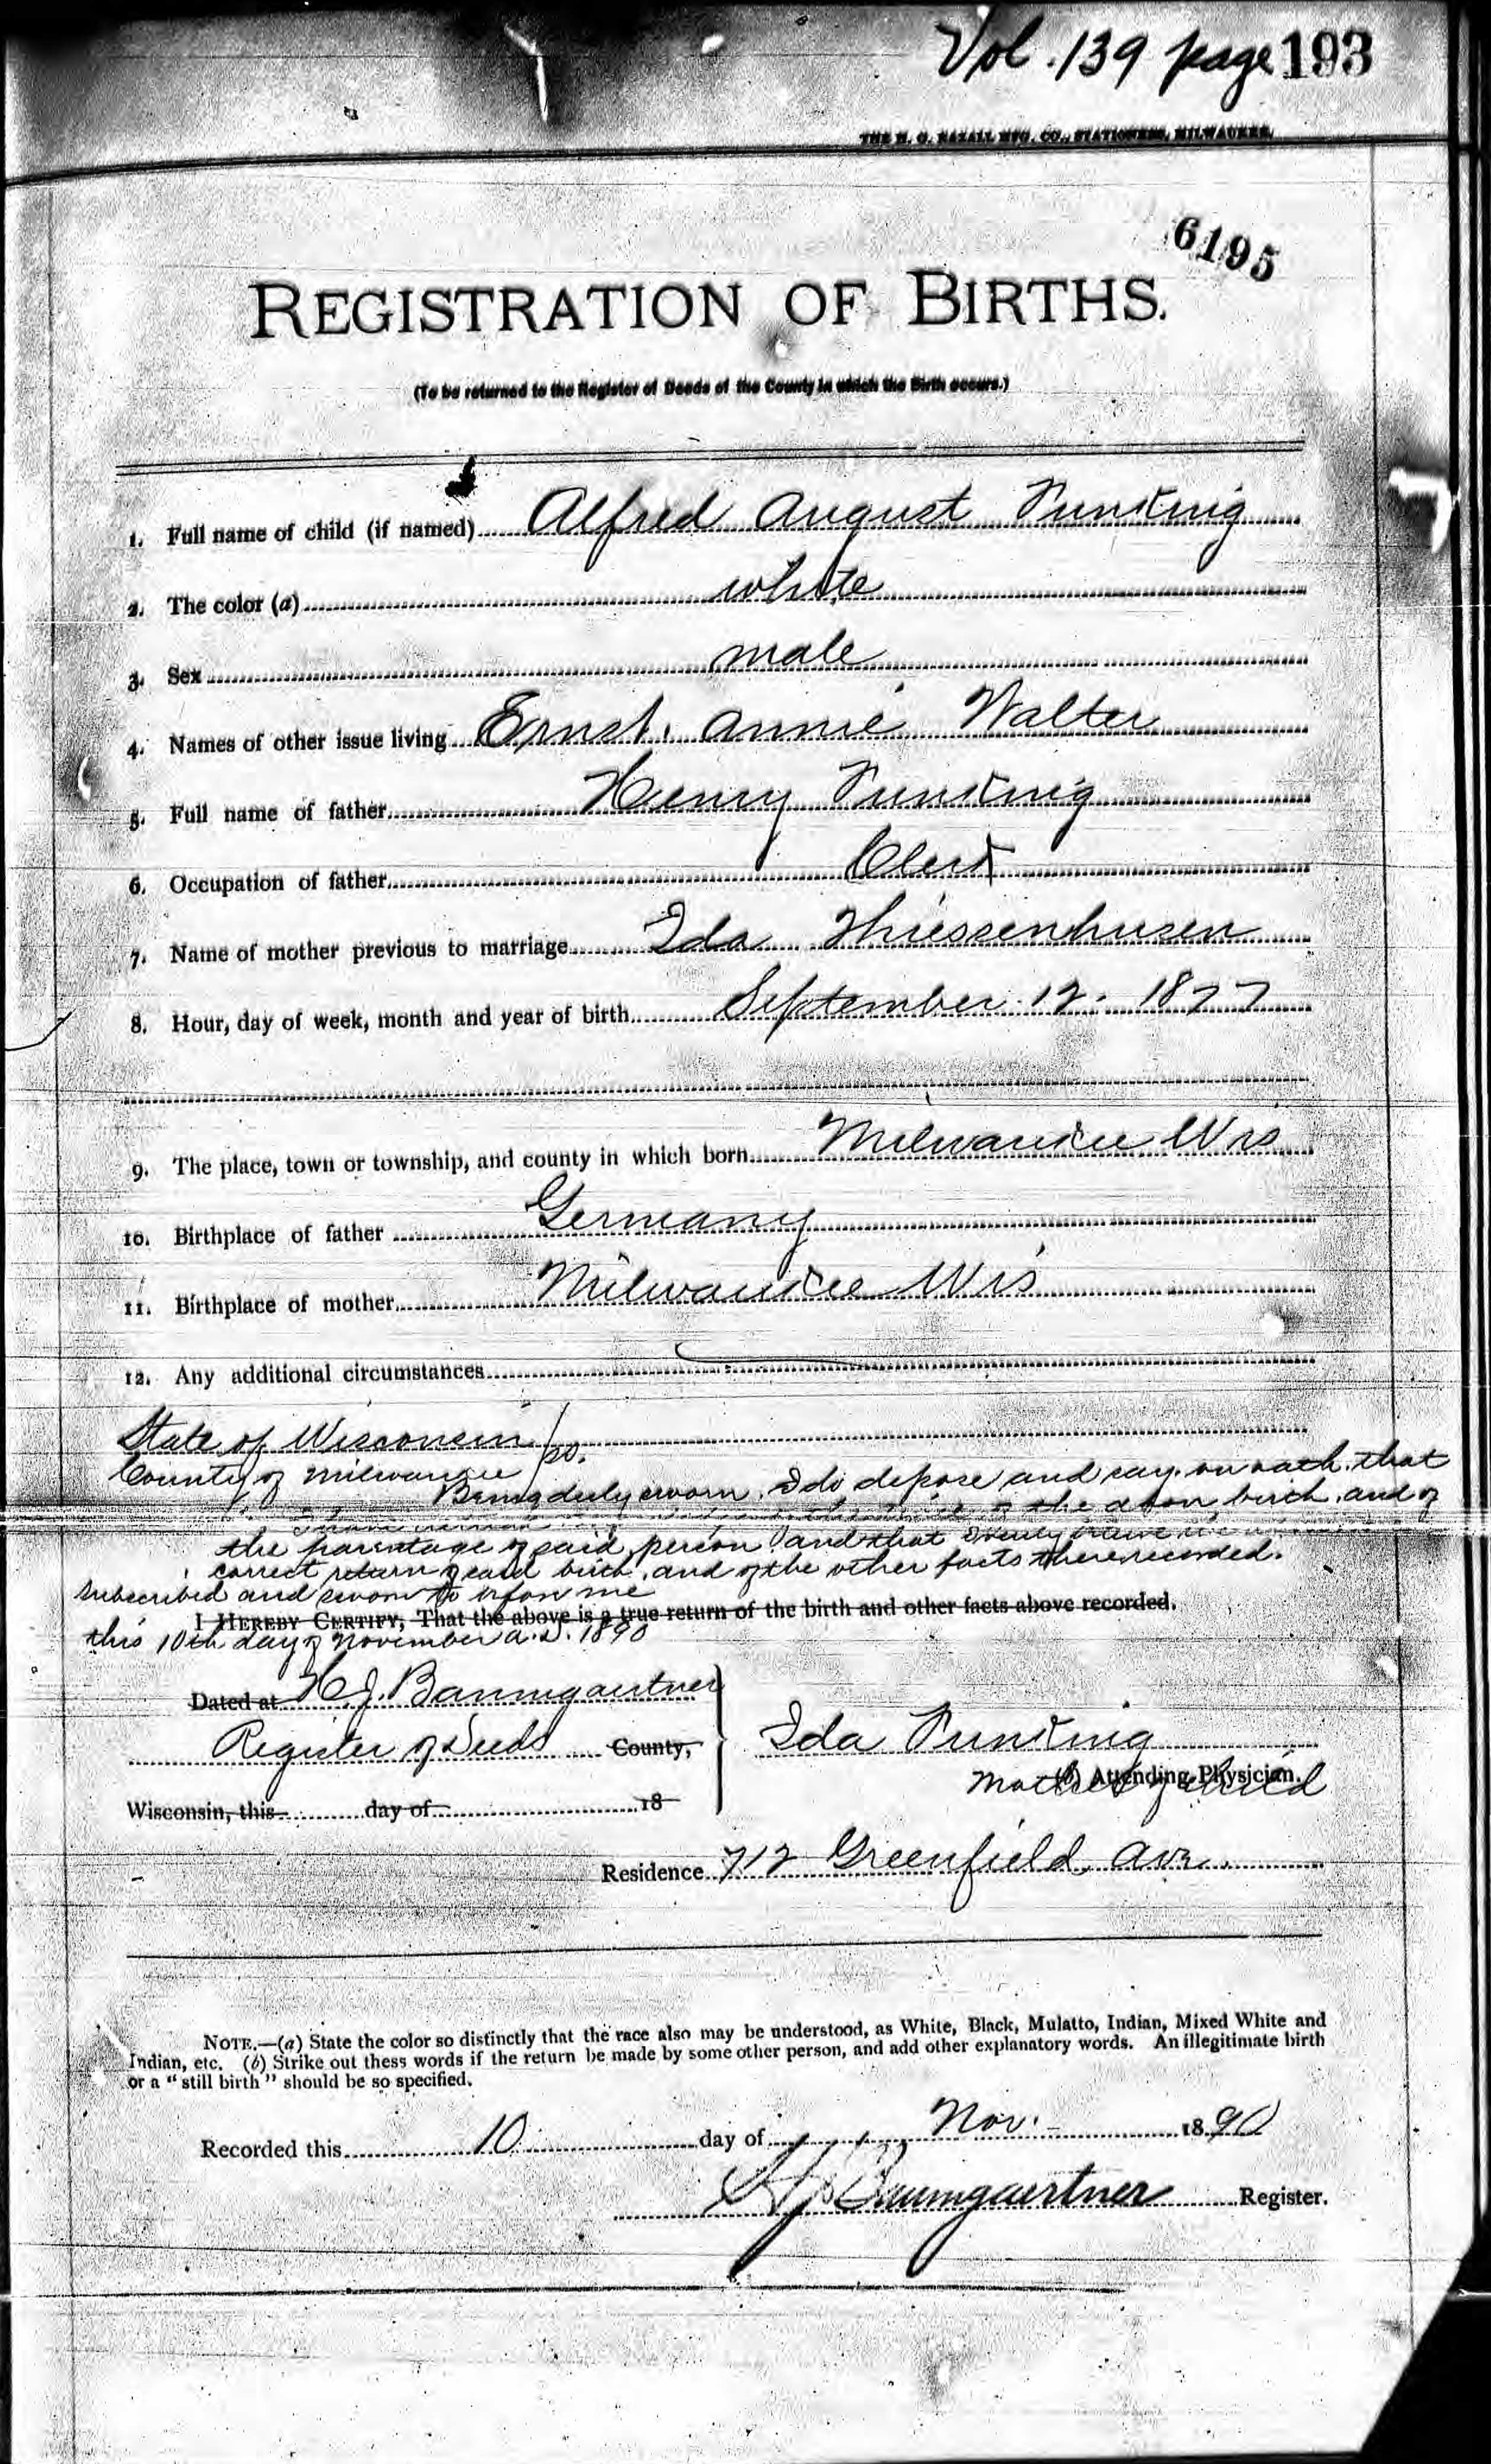 Vol. 139 page 193
THE H. G. RAZALL MFG. CO., STATIONERS, MILWAUKEE.
6195
REGISTRATION OF BIRTHS.
(To be returned to the Register of Deeds of the County in which the Birth occurs.)
1. Full name of child (if named) Alfred August
2. The color (a) white
3. Sex male
4. Names of other issue living Ernst, Annie Walter
5. Full name of father Henry
6. Occupation of father Clerk
7. Name of mother previous to marriage Ida Thiessenhusen
8. Hour, day of week, month and year of birth September 12. 1877
9. The place, town or township, and county in which born Milwaukee Wis
10. Birthplace of father Germany
11. Birthplace of mother Milwaukee Wis
12. Any additional circumstances
State of Wisconsin
County of Milwaukee } ss.
Being duly sworn, I do depose and say on oath, that
the above birth, and of
the parentage of said person and that
correct return of said birth, and of the other facts there recorded.
Subscribed and sworn to before me
I HEREBY CERTIFY, That the above is a true return of the birth and other facts above recorded.
this 10th day of November A.D. 1890
Dated at H.J. Baumgaertner
Register of Deeds County,
Ida
(b) Attending Physician.
Mother of child
Wisconsin, this day of 18
Residence 712 Greenfield Ave.
NOTE.—(a) State the color so distinctly that the race also may be understood, as White, Black, Mulatto, Indian, Mixed White and
Indian, etc. (b) Strike out thess words if the return be made by some other person, and add other explanatory words. An illegitimate birth
or a "still birth" should be so specified.
Recorded this 10 day of Nov. 1890
HJ Baumgaertner Register.